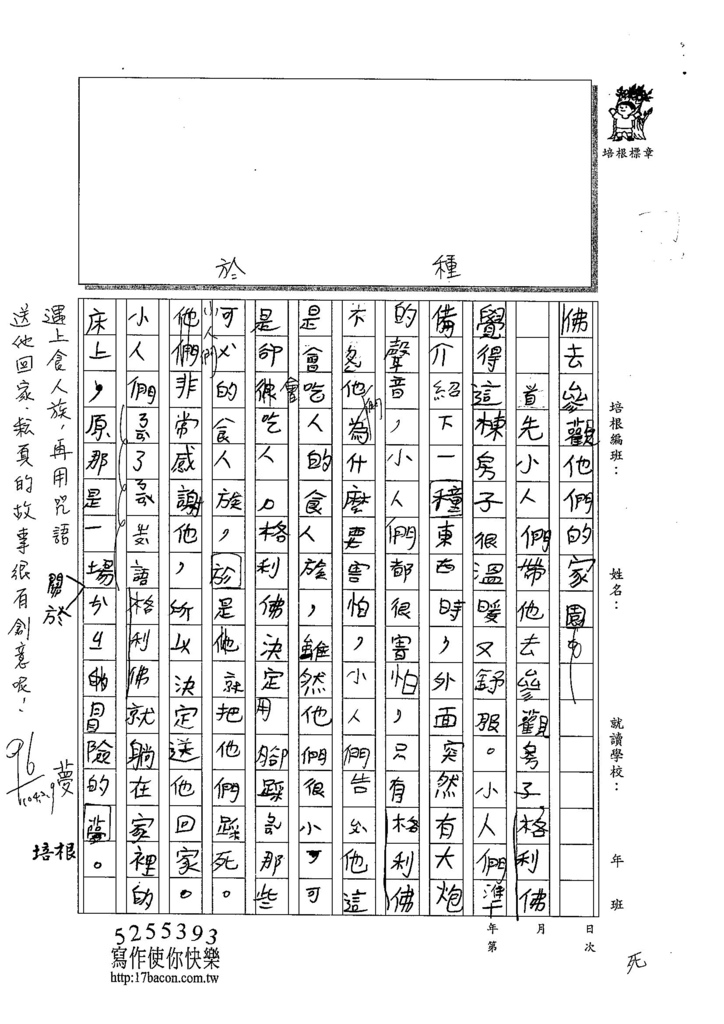 培根標章
種
於
培根編班：
姓名：
就讀學校：
年 班
月 日
年第 次
死
佛去參觀他們的家園
首先小人們帶他去參觀房子，格利佛
覺得這棟房子很溫暖又舒服。小人們準
備介紹下一種東西時，外面突然有大炮
的聲音，小人們都很害怕，只有格利佛
不 他們為什麼要害怕，小人們告 他這
是會吃人的食人族，雖然他們很小，可
是卻很會吃人。格利佛決定用腳踩 那些
可 的食人族，於是他就把他們踩死。
小人們
他們非常感謝他，所以決定送他回家。
小人們 了 語格利佛就躺在家裡的
床上，原那是一場 的冒險的夢。
關於
夢
遇上食人族，再用咒語
送他回家，紜真的故事很有創意呢！
96
培根
5255393
寫作使你快樂
http:17bacon.com.tw